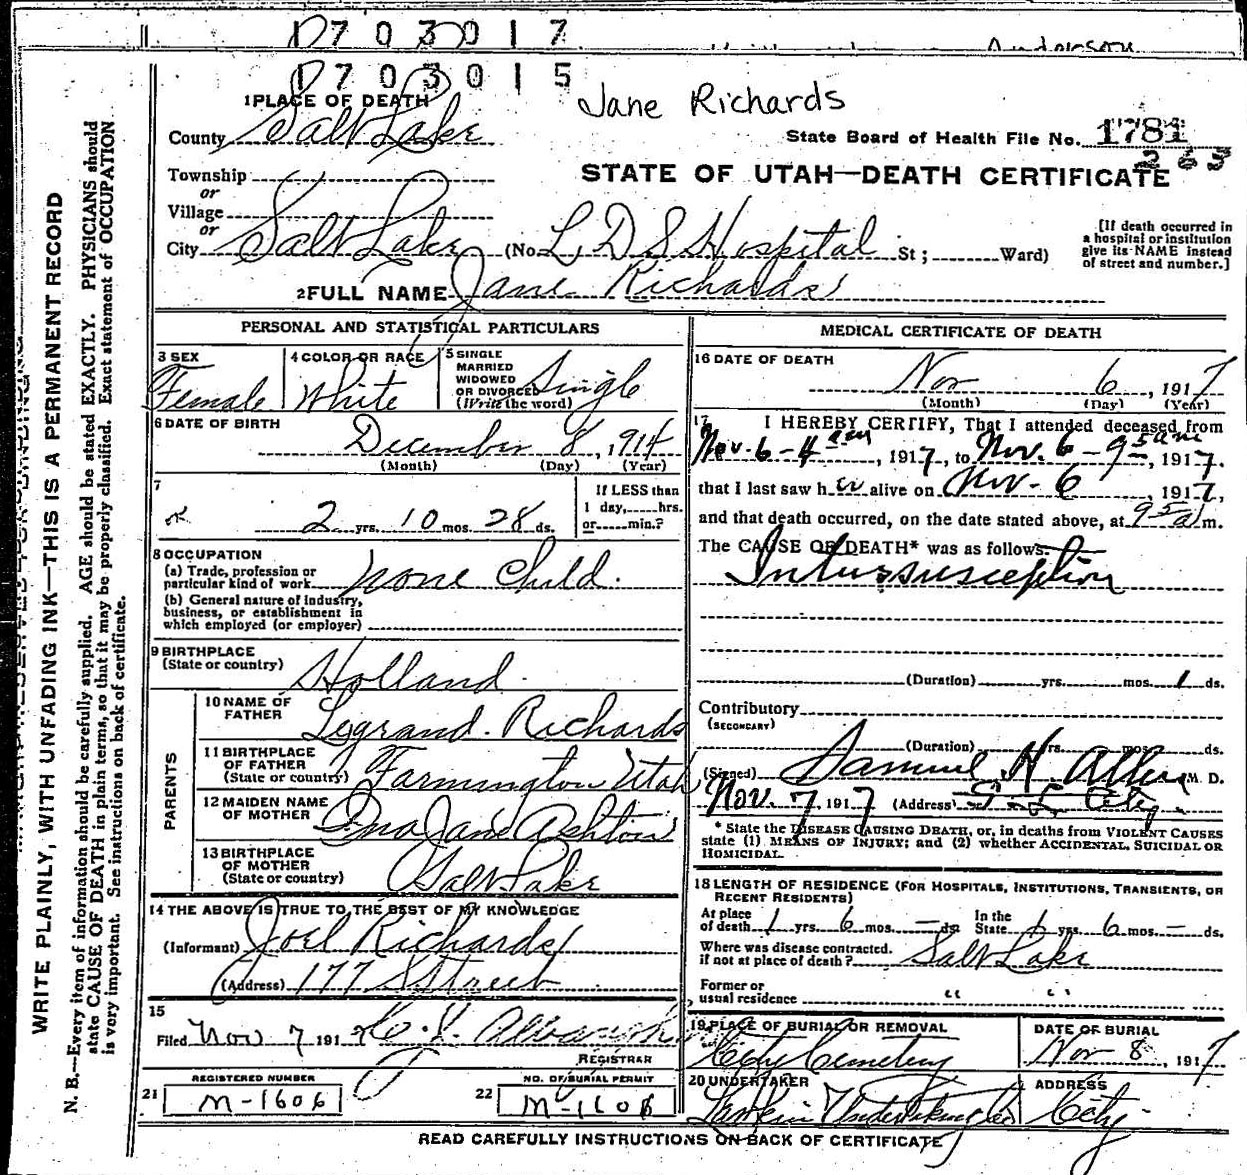 1703017
Anderson
1703015
Jane Richards
1 PLACE OF DEATH
County Salt Lake
State Board of Health File No. 1781
263
Township
or
STATE OF UTAH—DEATH CERTIFICATE
Village
or
City Salt Lake (No. L D S Hospital St ; Ward)
[If death occurred in
a hospital or institution
give its NAME instead
of street and number.]
2 FULL NAME Jane Richards
PERSONAL AND STATISTICAL PARTICULARS
3 SEX
Female
4 COLOR OR RACE
White
5 SINGLE
MARRIED
WIDOWED
OR DIVORCED
(Write the word)
Single
6 DATE OF BIRTH
December 8, 1914
(Month) (Day) (Year)
7
2 yrs. 10 mos. 28 ds.
If LESS than
1 day, hrs.
or min.?
8 OCCUPATION
(a) Trade, profession or
particular kind of work none Child.
(b) General nature of industry,
business, or establishment in
which employed (or employer)
9 BIRTHPLACE
(State or country) Holland.
PARENTS
10 NAME OF
FATHER Legrand Richards
11 BIRTHPLACE
OF FATHER
(State or country) Farmington Utah
12 MAIDEN NAME
OF MOTHER Ina Jane Ashton
13 BIRTHPLACE
OF MOTHER
(State or country) Salt Lake
14 THE ABOVE IS TRUE TO THE BEST OF MY KNOWLEDGE
(Informant) Joel Richards
(Address) 177 S Street
15
Filed Nov 7 1917
REGISTRAR
REGISTERED NUMBER
21 M-1606
NO. OF BURIAL PERMIT
22 M-1606
MEDICAL CERTIFICATE OF DEATH
16 DATE OF DEATH
Nov 6, 1917
(Month) (Day) (Year)
17 I HEREBY CERTIFY, That I attended deceased from
Nov. 6 - 4 am, 1917, to Nov. 6 - 9 5 am, 1917.
that I last saw her alive on Nov. 6, 1917,
and that death occurred, on the date stated above, at 9 5 a m.
The CAUSE OF DEATH* was as follows:
Intussusception
(Duration) yrs. mos. 1 ds.
Contributory
(SECONDARY)
(Duration) yrs. mos. ds.
(Signed) Samuel H. Allen M. D.
Nov. 7, 1917 (Address) S. L. City.
* State the DISEASE CAUSING DEATH, or, in deaths from VIOLENT CAUSES
state (1) MEANS OF INJURY; and (2) whether ACCIDENTAL, SUICIDAL OR
HOMICIDAL.
18 LENGTH OF RESIDENCE (FOR HOSPITALS, INSTITUTIONS, TRANSIENTS, OR
RECENT RESIDENTS)
At place
of death 1 yrs. 6 mos. — ds.
In the
State 1 yrs. 6 mos. — ds.
Where was disease contracted.
if not at place of death? Salt Lake
Former or
usual residence " "
19 PLACE OF BURIAL OR REMOVAL
City Cemetery
DATE OF BURIAL
Nov 8, 1917
20 UNDERTAKER
Larkin Undertaking Co
ADDRESS
City
READ CAREFULLY INSTRUCTIONS ON BACK OF CERTIFICATE
WRITE PLAINLY, WITH UNFADING INK—THIS IS A PERMANENT RECORD
N. B.—Every item of information should be carefully supplied. AGE should be stated EXACTLY. PHYSICIANS should
state CAUSE OF DEATH in plain terms, so that it may be properly classified. Exact statement of OCCUPATION
is very important. See instructions on back of certificate.